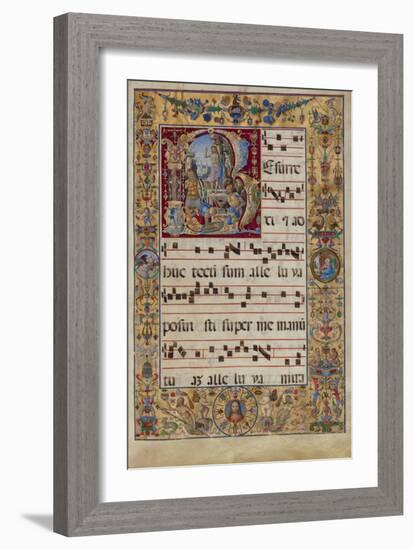 R esurre
xi ⁊ ad
huc tecũ sum alle lu ya
posuis sti super me manũ
tu aʒ alle lu ya mira